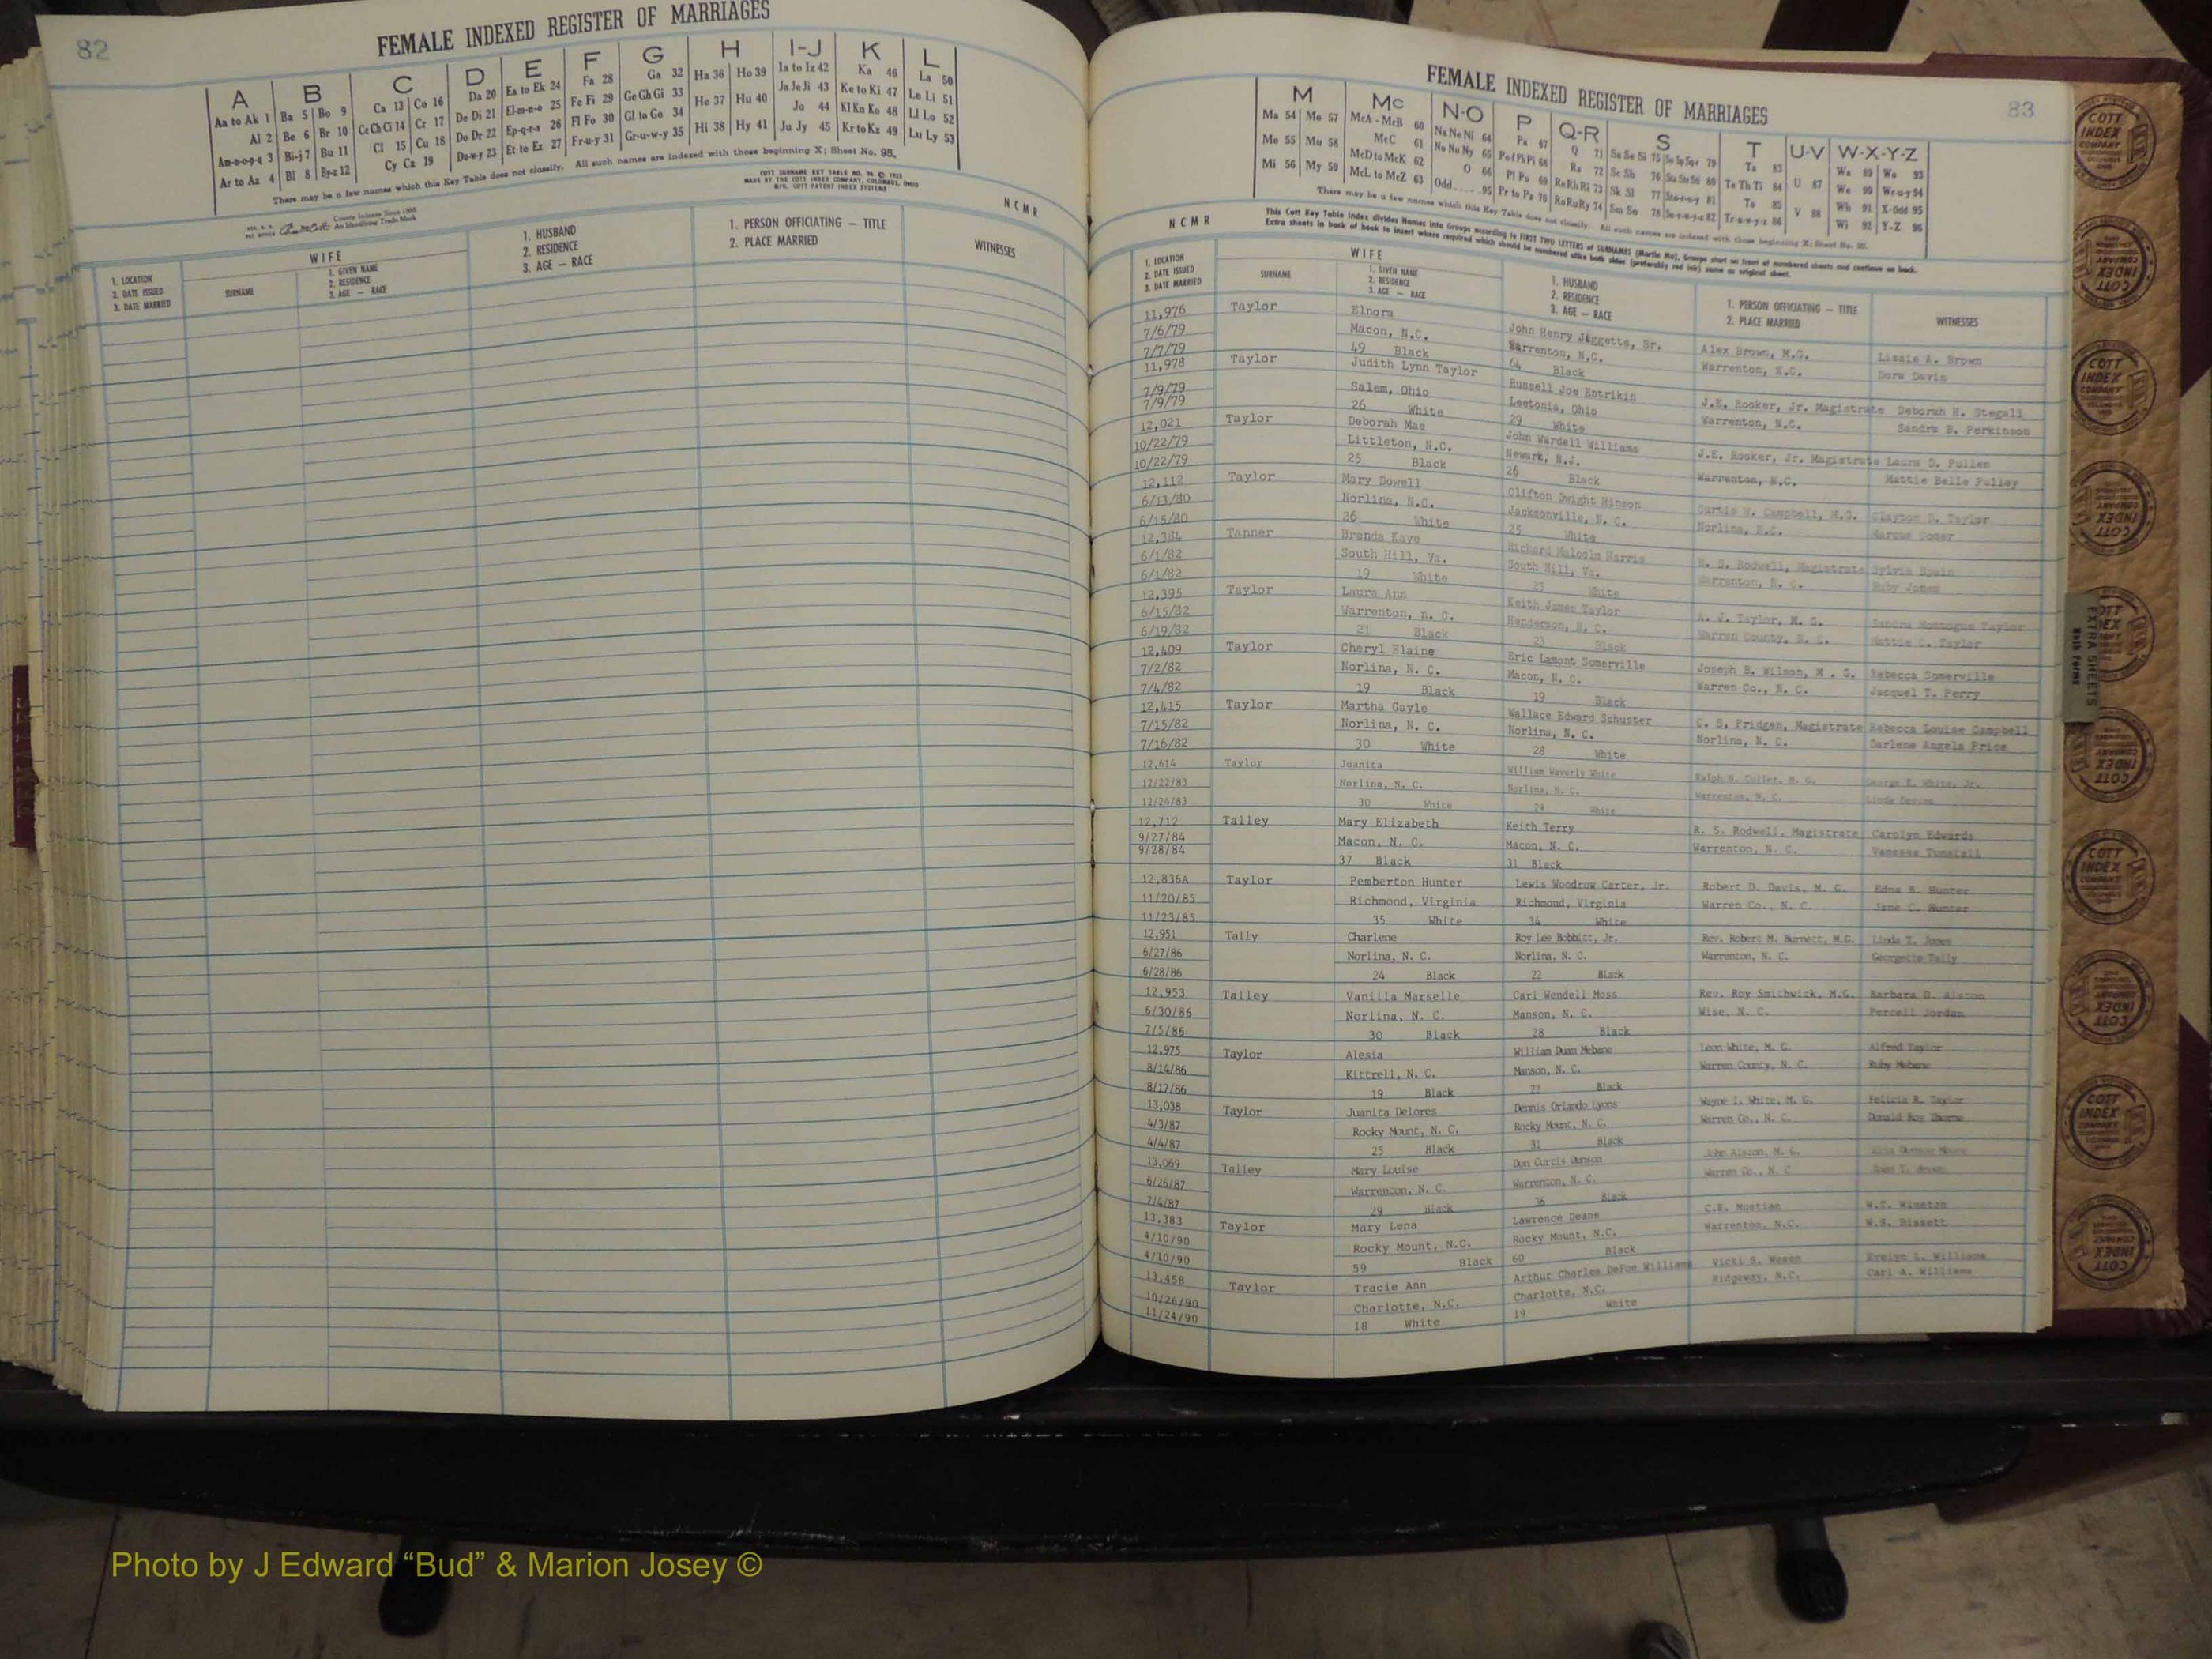 82
FEMALE INDEXED REGISTER OF MARRIAGES
A B C D E F G H I-J K L
Aa to Ak 1 Ba 5 Bo 9 Ca 13 Co 16 Da 20 Ea to Ek 24 Fa 28 Ga 32 Ha 36 Ho 39 Ia to Iz 42 Ka 46 La 50
Al 2 Be 6 Br 10 Ce Ch Ci 14 Cr 17 De Di 21 El-m-n-o 25 Fe Fi 29 Ge Gh Gi 33 He 37 Hu 40 Ja Je Ji 43 Ke to Ki 47 Le Li 51
Am-n-o-p-q 3 Bi-j 7 Bu 11 Cl 15 Cu 18 Do Dr 22 Ep-q-r-s 26 Fl Fo 30 Gl to Go 34 Hi 38 Hy 41 Jo 44 Kl Kn Ko 48 Ll Lo 52
Ar to Az 4 Bl 8 By-z 12 Cy Cz 19 Du-w-y 23 Et to Ez 27 Fr-u-y 31 Gr-u-w-y 35 Ju Jy 45 Kr to Kz 49 Lu Ly 53
There may be a few names which this Key Table does not classify. All such names are indexed with those beginning X; Sheet No. 95.
COTT SURNAME KEY TABLE NO.
MADE BY THE COTT INDEX COMPANY, COLUMBUS, OHIO
COTT PATENT INDEX SYSTEMS
County Indexes Since 1888
An Identifying Trade Mark
N C M R
1. LOCATION
2. DATE ISSUED
3. DATE MARRIED
WIFE
SURNAME
1. GIVEN NAME
2. RESIDENCE
3. AGE — RACE
1. HUSBAND
2. RESIDENCE
3. AGE — RACE
1. PERSON OFFICIATING — TITLE
2. PLACE MARRIED
WITNESSES
83
FEMALE INDEXED REGISTER OF MARRIAGES
M Mc N-O P Q-R S T U-V W-X-Y-Z
Ma 54 Mo 57 McA - McB 60 Na Ne Ni 64 Pa 67 Q 71 Sa Se Si 75 Ta 83 Wa 89 Wo 93
Me 55 Mu 58 McC 61 No Nu Ny 65 Pe Pf Ph Pi 68 Ra 72 Sc Sh 76 Te Th Ti 84 U 87 We 90 Wr-u-y 94
Mi 56 My 59 McD to McK 62 O 66 Pl Po 69 Re Rh Ri 73 Sk Sl 77 To 85 V 88 Wh 91 X-Odd 95
McL to McZ 63 Odd.....95 Pr to Pz 70 Ro Ru Ry 74 Sm Sn 78 Tr-u-w-y-z 86 Wi 92 Y-Z 96
There may be a few names which this Key Table does not classify. All such names are indexed with those beginning X; Sheet No. 95.
N C M R
This Cott Key Table Index divides Names into Groups according to FIRST TWO LETTERS of SURNAMES (Martin Ma). Groups start on front of numbered sheets and continue on back.
Extra sheets in back of book to insert where required which should be numbered alike both sides (preferably red ink) same as original sheet.
1. LOCATION
2. DATE ISSUED
3. DATE MARRIED
WIFE
SURNAME
1. GIVEN NAME
2. RESIDENCE
3. AGE — RACE
1. HUSBAND
2. RESIDENCE
3. AGE — RACE
1. PERSON OFFICIATING — TITLE
2. PLACE MARRIED
WITNESSES
11,976 Taylor Elnora John Henry Jiggetts, Sr. Alex Brown, M.G. Lizzie A. Brown
7/6/79 Macon, N.C. Warrenton, N.C. Warrenton, N.C. Dora Davis
7/7/79 49 Black 64 Black
11,978 Taylor Judith Lynn Taylor Russell Joe Entrikin J.E. Rooker, Jr. Magistrate Deborah H. Stegall
7/9/79 Salem, Ohio Leetonia, Ohio Warrenton, N.C. Sandra B. Perkinson
7/9/79 26 White 29 White
12,021 Taylor Deborah Mae John Wardell Williams J.E. Rooker, Jr. Magistrate Laura D. Pullen
10/22/79 Littleton, N.C. Newark, N.J. Warrenton, N.C. Mattie Belle Pulley
10/22/79 25 Black 26 Black
12,112 Taylor Mary Dowell Clifton Dwight Hinson Curtis W. Campbell, M.G. Clayton S. Taylor
6/13/80 Norlina, N.C. Jacksonville, N. C. Norlina, N.C. Marcus
6/15/80 26 White 25 White
12,384 Tanner Brenda Kaye Richard Malcolm Harris R. S. Rodwell, Magistrate Sylvia Spain
6/1/82 South Hill, Va. South Hill, Va. Warrenton, N. C. Ruby Jones
6/1/82 19 White 23 White
12,395 Taylor Laura Ann Keith James Taylor A. J. Taylor, M. G. Sandra Montague Taylor
6/15/82 Warrenton, n. C. Henderson, N. C. Warren County, N. C. Mattie C. Taylor
6/19/82 21 Black 23 Black
12,409 Taylor Cheryl Elaine Eric Lamont Somerville Joseph B. Wilson, M . G. Rebecca Somerville
7/2/82 Norlina, N. C. Macon, N. C. Warren Co., N. C. Jacquel T. Perry
7/4/82 19 Black 19 Black
12,415 Taylor Martha Gayle Wallace Edward Schuster C. S. Pridgen, Magistrate Rebecca Louise Campbell
7/15/82 Norlina, N. C. Norlina, N. C. Norlina, N. C. Darlene Angela Price
7/16/82 30 White 28 White
12,614 Taylor Juanita William Waverly White Ralph N. Culler, M. G. George E. White, Jr.
12/22/83 Norlina, N. C. Norlina, N. C. Warrenton, N. C. Linda
12/24/83 30 White 29 White
12,712 Talley Mary Elizabeth Keith Terry R. S. Rodwell, Magistrate Carolyn Edwards
9/27/84 Macon, N. C. Macon, N. C. Warrenton, N. C. Vanessa Tunstall
9/28/84 37 Black 31 Black
12,836A Taylor Pemberton Hunter Lewis Woodrow Carter, Jr. Robert D. Davis, M. G. Edna B. Hunter
11/20/85 Richmond, Virginia Richmond, Virginia Warren Co., N. C. Jane C. Hunter
11/23/85 35 White 34 White
12,951 Tally Charlene Roy Lee Bobbitt, Jr. Rev. Robert M. Burnett, M.G. Linda T. Jones
6/27/86 Norlina, N. C. Norlina, N. C. Warrenton, N. C. Georgette Tally
6/28/86 24 Black 22 Black
12,953 Talley Vanilla Marselle Carl Wendell Moss Rev. Roy Smithwick, M.G. Barbara D. Alston
6/30/86 Norlina, N. C. Manson, N. C. Wise, N. C. Percell Jordan
7/5/86 30 Black 28 Black
12,975 Taylor Alesia William Duan Mebane Leon White, M. G. Alfred Taylor
8/14/86 Kittrell, N. C. Manson, N. C. Warren County, N. C. Ruby Mebane
8/17/86 19 Black 22 Black
13,038 Taylor Juanita Delores Dennis Orlando Lyons Wayne I. White, M. G. Felicia R. Taylor
4/3/87 Rocky Mount, N. C. Rocky Mount, N. C. Warren Co., N. C. Donald Roy Thorne
4/4/87 25 Black 31 Black
13,069 Talley Mary Louise Don Curtis Dunson John Alston, M. G.
6/26/87 Warrenton, N. C. Warrenton, N. C. Warren Co., N. C
7/4/87 29 Black 36 Black
13,383 Taylor Mary Lena Lawrence Deans C.E. Mustian W.T. Winston
4/10/90 Rocky Mount, N.C. Rocky Mount, N.C. Warrenton, N.C. W.S. Bissett
4/10/90 59 Black 60 Black
13,458 Taylor Tracie Ann Arthur Charles DeFoe Williams Vicki S. Evelyn L. Williams
10/26/90 Charlotte, N.C. Charlotte, N.C. Ridgeway, N.C. Carl A. Williams
11/24/90 18 White 19 White
COTT INDEX COMPANY
EXTRA SHEETS
Photo by J Edward “Bud” & Marion Josey ©